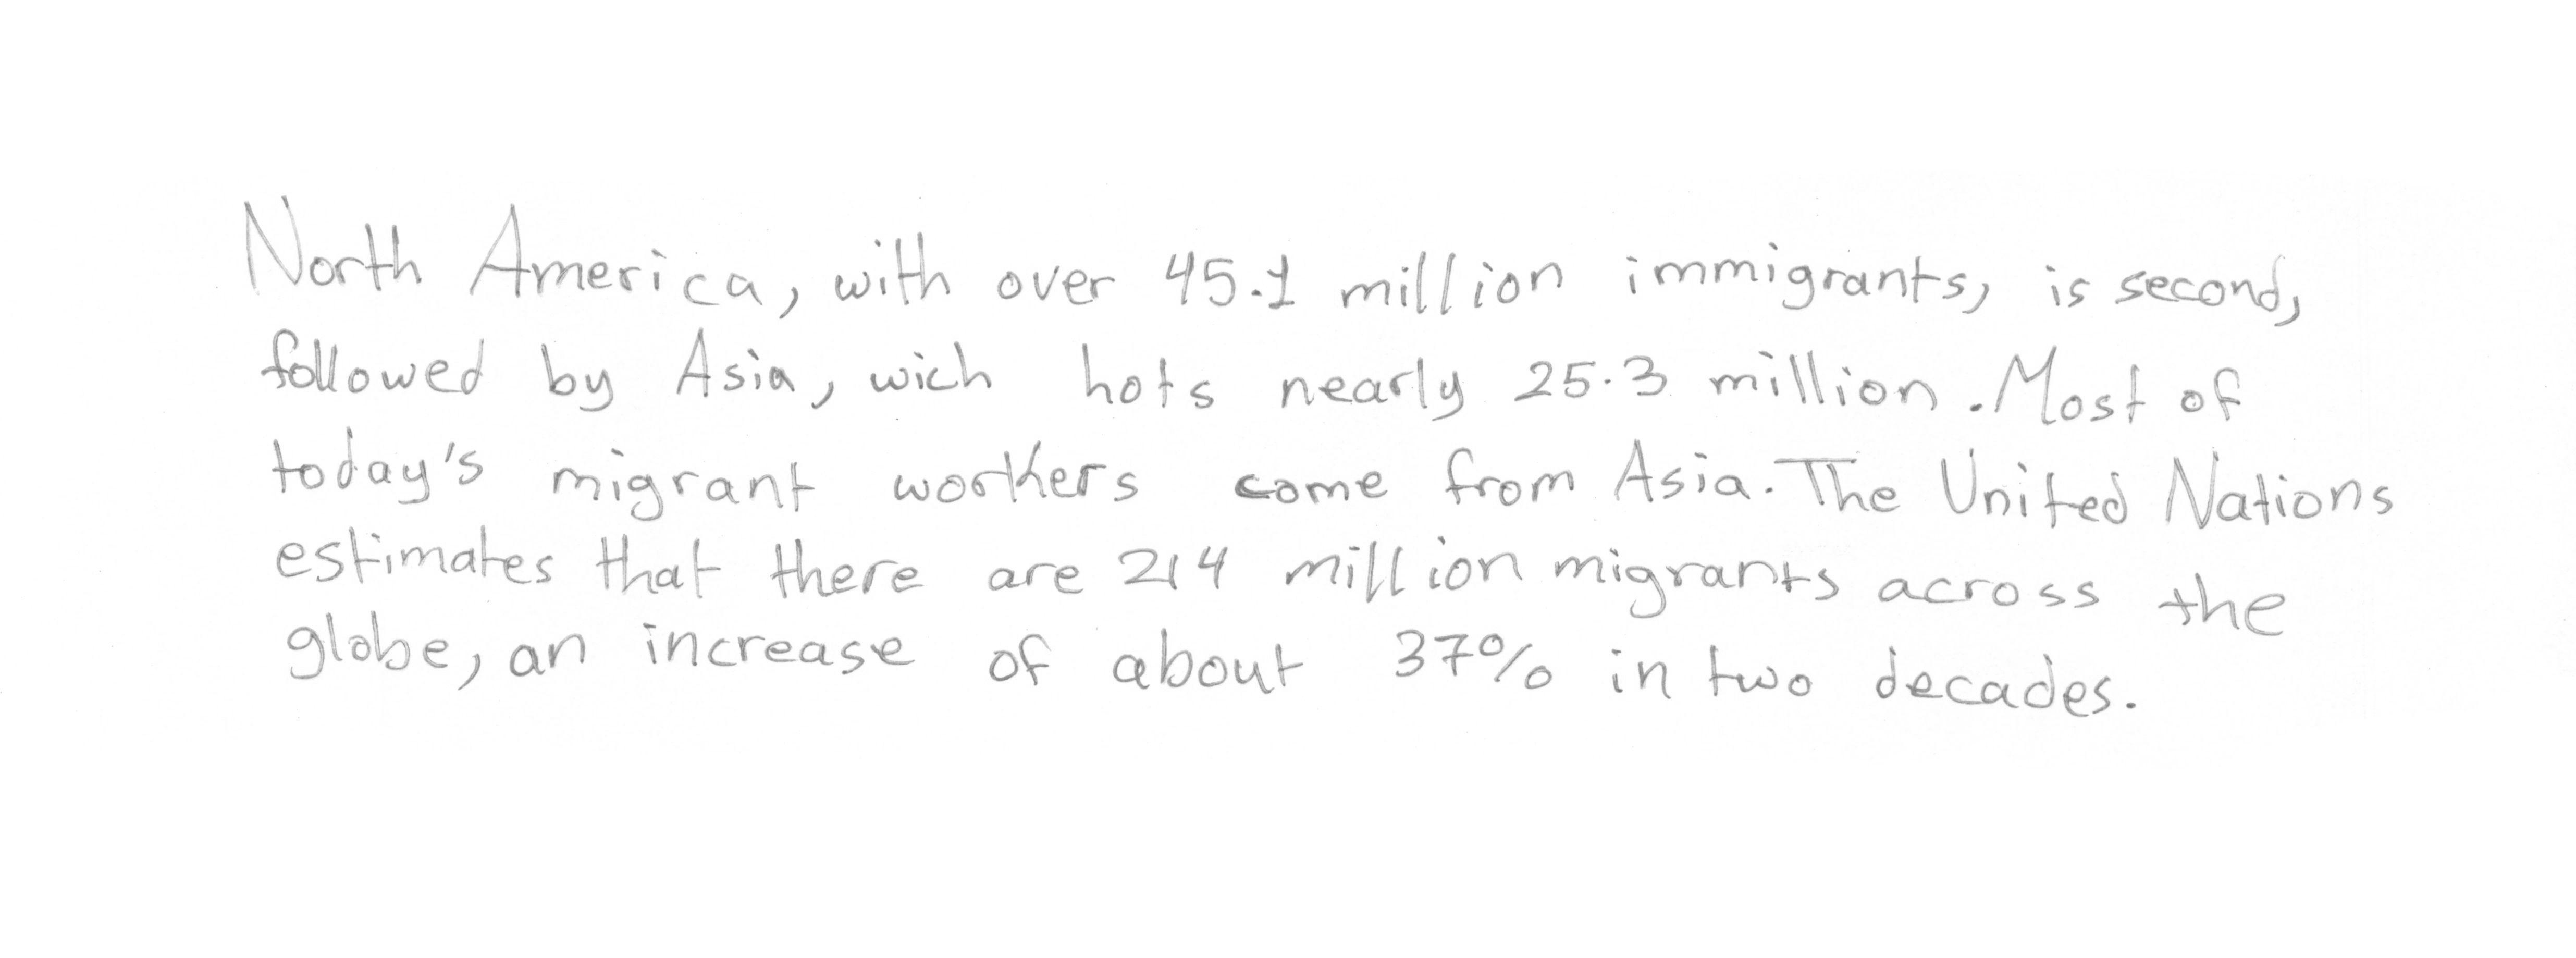 North America, with over 45.1 million immigrants, is second,
followed by Asia, wich hots nearly 25.3 million. Most of
today's migrant workers come from Asia. The United Nations
estimates that there are 214 million migrants across the
globe, an increase of about 37% in two decades.